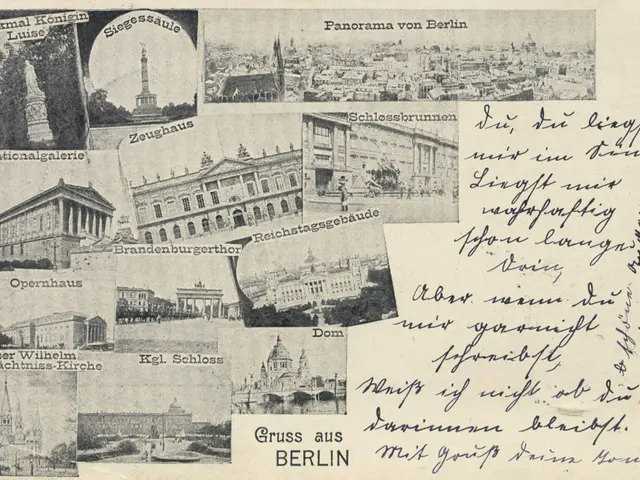 kmal Königin
Luise
Siegessäule
Panorama von Berlin
Zeughaus
Schlossbrunnen
tionalgalerie
Reichstagsgebäude
Brandenburgerthor
Opernhaus
Dom
ser Wilhelm
ächtniss-Kirche
Kgl. Schloss
Gruss aus
BERLIN
Du, du lieg
mir im Sin
Liegst mir
wahrhaftig
schon lange
drin,
Aber wenn du
mir garnicht
schreibst,
Weiß ich nicht ob du
darinnen bleibst.
Mit Gruß deine